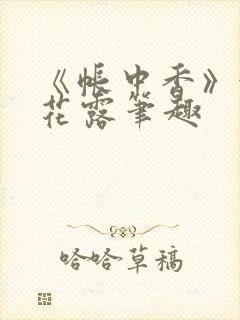 《帐中香》
花露笔趣
哈哈草稿